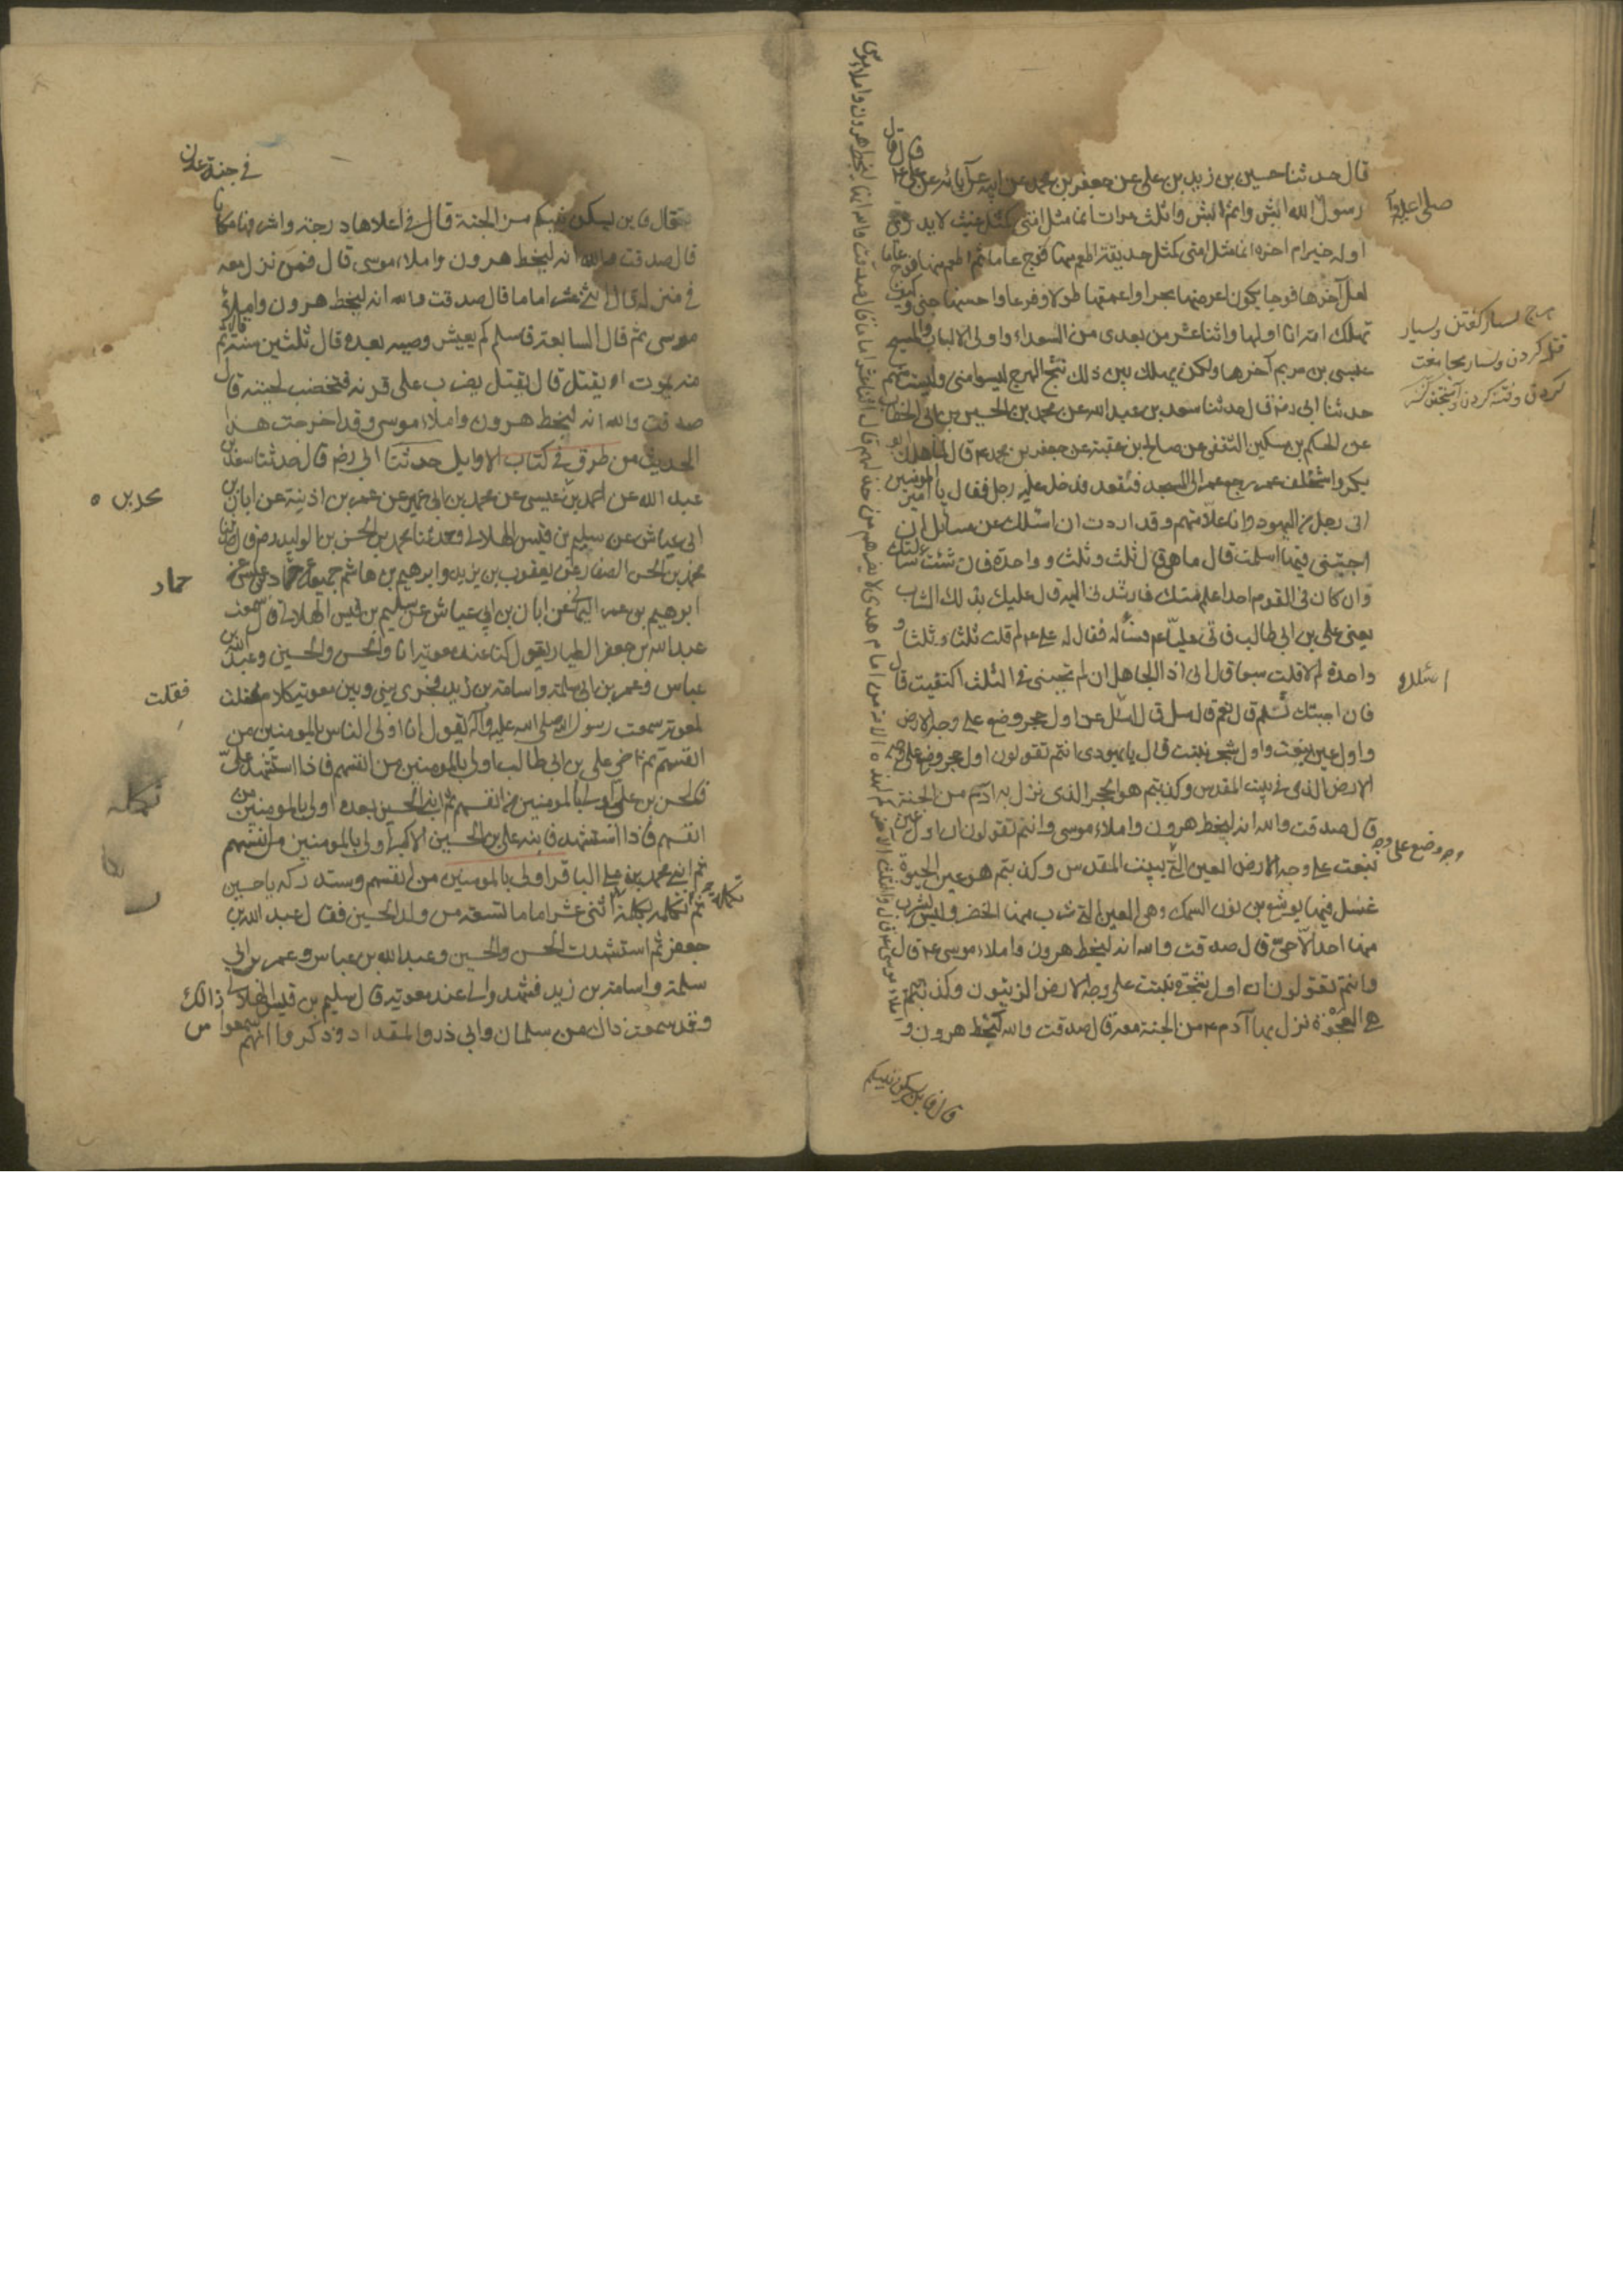 قال حدثنا حسين بن زيد بن علي عن جعفر بن محمد عن ابيه عن آبائه عن علي ع قال قال
رسول الله ابشروا ثم ابشروا ثلث مرات انما مثل امتي كمثل غيث لا يدرى
صلى الله عليه وآله
اوله خير ام اخره انما مثل امتي كمثل حديقة اطعم منها فوج عاما ثم اطعم منها فوج عاما
لعل آخرها فوجا يكون اعرضها بحرا واعمقها طولا وفرعا واحسنها جنى وكيف
تهلك امة انا اولها واثنا عشر من بعدي من السعداء واولى الالباب والمسيح
عيسى بن مريم آخرها ولكن يهلك بين ذلك نتج الهرج ليسوا مني ولست منهم
هرج بسيار گفتن وبسيار
قتل كردن وبسيار مجامعت
كردن وفتنه كردن
حدثنا ابي رض قال حدثنا سعد بن عبدالله عن محمد بن الحسين بن ابي الخطاب
عن الحكم بن مسكين الثقفي عن صالح بن عقبة عن جعفر بن محمد ع قال لما هلك ابو
بكر واستخلف عمر رجع عمر الى المسجد فقعد فدخل عليه رجل فقال يا امير المومنين
اني رجل من اليهود وانا علامتهم وقد اردت ان اسئلك عن مسائل ان
اجبتني فيها اسلمت قال ما هي قال ثلث وثلث و واحدة فان شئت سالتك
وان كان في القوم احد اعلم منك فارشدني اليه قال عليك بذلك الشاب
يعني علي بن ابي طالب فاتى عليا ع فسأله فقال له علي ع لم قلت ثلثا وثلثا و
واحدة الا قلت سبعا قال اني اذا لجاهل ان لم تجبني في الثلث اكتفيت قال
فان اجبتك تسلم قال نعم قال سل قال اسئلك عن اول حجر وضع على وجه الارض
اسئلك
واول عين نبعت واول شجرة نبتت قال يا يهودي انتم تقولون اول حجر وضع على وجه
الارض الذي في بيت المقدس وكذبتم هو الحجر الذي نزل به آدم من الجنة
قال صدقت والله انه لبخط هرون واملاء موسى وانتم تقولون ان اول عين
نبعت على وجه الارض العين التي ببيت المقدس وكذبتم هو عين الحيوة
وضع على وجه
غسل فيها يوشع بن نون السمك وهي العين التي شرب منها الخضر وليس يشرب
منها احد الا حي قال صدقت والله انه لبخط هرون واملاء موسى ع قال
وانتم تقولون ان اول شجرة نبتت على وجه الارض الزيتون وكذبتم
هي العجوة نزل بها آدم ع من الجنة معه قال صدقت والله لبخط هرون و
املاء موسى ع قال والثلث الاخرى كم لهذه الامة من امام هدى لا يضرهم من خذلهم قال اثنا عشر اماما قال صدقت والله انه لبخط هرون واملاء موسى
قال فاين يسكن نبيكم
قال فاين يسكن نبيكم من الجنة قال في اعلاها درجة واشرفها مكانا
في جنة عدن
قال صدقت والله انه لبخط هرون واملاء موسى قال فمن نزل معه
في منزله قال اثنى عشر اماما قال صدقت والله انه لبخط هرون واملاء
موسى ثم قال السابعة فاسلم كم يعيش وصيه بعده قال ثلثين سنة قال ثم
مه يموت او يقتل قال يقتل يضرب على قرنه فتخضب لحيته قال
صدقت والله انه لبخط هرون واملاء موسى وقد اخرجت هذا
الحديث من طرق في كتاب الاوايل حدثنا ابي رض قال حدثنا سعد بن
عبد الله عن احمد بن محمد بن عيسى عن محمد بن ابي عمير عن عمر بن اذينة عن ابان بن
محمد بن
ابي عياش عن سليم بن قيس الهلالي وحدثنا محمد بن الحسن بن الوليد رض قال حدثنا
محمد بن الحسن الصفار عن يعقوب بن يزيد وابرهيم بن هاشم جميعا عن حماد بن عيسى عن
حماد
ابرهيم بن عمر اليماني عن ابان بن ابي عياش عن سليم بن قيس الهلالي قال سمعت
عبد الله بن جعفر الطيار يقول كنا عند معوية انا والحسن والحسين وعبد الله بن
عباس وعمر بن ابي سلمة واسامة بن زيد فجرى بيني وبين معوية كلام فقلت
فقلت
لمعوية سمعت رسول الله صلى الله عليه وآله يقول انا اولى الناس بالمومنين من
انفسهم ثم اخي علي بن ابي طالب اولى بالمومنين من انفسهم فاذا استشهد علي
فالحسن بن علي اولى بالمومنين من انفسهم ثم ابني الحسين بعده اولى بالمومنين من
تكمله
انفسهم فاذا استشهد فابنه علي بن الحسين الاكبر اولى بالمومنين من انفسهم
ثم ابني محمد بن علي الباقر اولى بالمومنين من انفسهم وستدركه يا حسين
ثم تكمله تكملة اثنى عشر اماما تسعة من ولد الحسين فقال عبد الله بن
جعفر ثم استشهدت الحسن والحسين وعبد الله بن عباس وعمر بن ابي
سلمة واسامة بن زيد فشهدوا لي عند معوية قال سليم بن قيس الهلالي
وقد سمعت ذلك من سلمان وابي ذر والمقداد وذكروا انهم سمعوا ذالك من